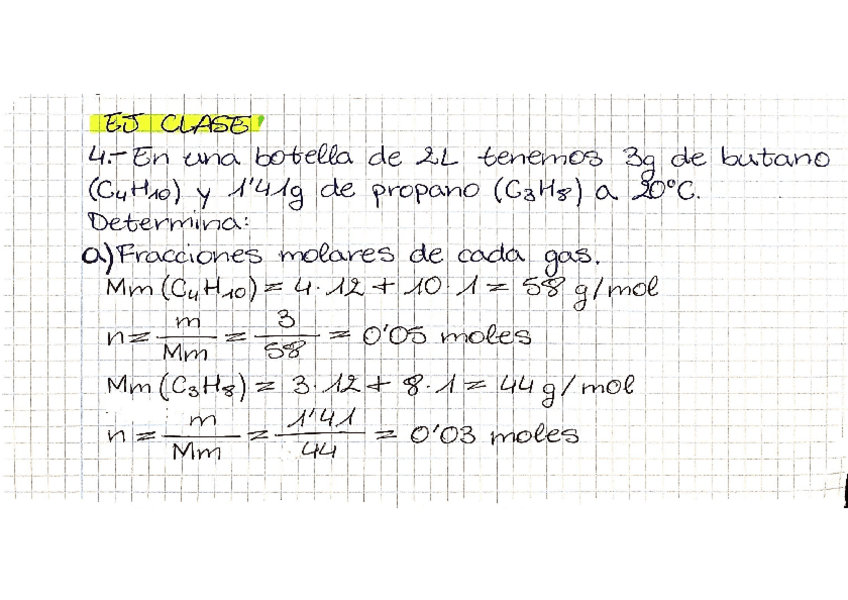 EJ CLASE
4.- En una botella de 2L tenemos 3g de butano
(C₄H₁₀) y 1'41g de propano (C₃H₈) a 20°C.
Determina:
a) Fracciones molares de cada gas.
Mm (C₄H₁₀) = 4·12 + 10·1 = 58 g/mol
n = m/Mm = 3/58 = 0'05 moles
Mm (C₃H₈) = 3·12 + 8·1 = 44 g/mol
n = m/Mm = 1'41/44 = 0'03 moles